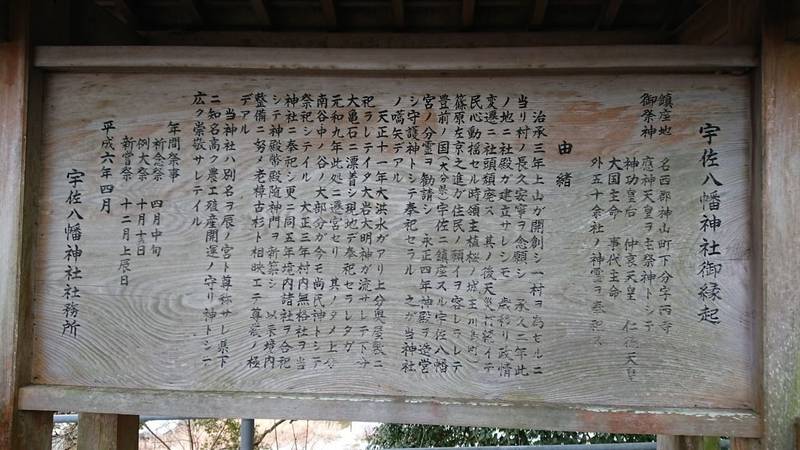 宇佐八幡神社御縁起
鎮座地 名西郡神山町下分字西寺
御祭神 應神天皇ヲ主祭神トシテ
神功皇后 仲哀天皇 仁徳天皇
大国主命 事代主命
外五十余社ノ神霊ヲ奉祀ス
由緒
治承三年上山が開創シ一村ヲ為セルニ
当リ村ノ長久安寧ヲ念願シ 承久二年此
ノ地ニ社殿が建立サレシモ 歳移リ政情
変遷ニ社頭頽廃ス 其ノ後天災 イテ
民心動揺セル時領主植桜ノ城主川
篠原左京之進が住民ノ願イヲ容レラレテ
豊前ノ国(大分県)宇佐ニ鎮座スル宇佐八幡
宮ノ分霊ヲ勧請シ 永正四年神殿ヲ造営
シ守護神トシテ奉祀セラル 之が当神社
ノ嚆矢デアル
天正十一年大洪水がアリ上分奥屋敷ニ
祀ラレテイタ大岩大明神が流サレテ下分
大亀石ニ漂着シ現地デ奉祀セラレタが
元和九年此処ニ遷宮セリ 其ノタメ上分
南谷中ノ谷ノ大部分が今モ尚氏神トシテ
祭祀シテイル 大正三年村内無格社ヲ当
神社ニ奉祀シ更ニ同五年境内諸社ヲ合祀
シテ神殿幣殿随神門ヲ新築シ 以来境内
整備ニ努メ老樟古杉ト相映エテ尊厳ノ極
デアル
当神社ハ別名ヲ辰ノ宮ト尊称サレ県下
ニ知名高ク農工殖産開運ノ守リ神トシテ
広ク崇敬サレテイル
年間祭事
祈念祭 四月中旬
例大祭 十月十三日
新嘗祭 十二月上辰日
平成六年四月
宇佐八幡神社社務所